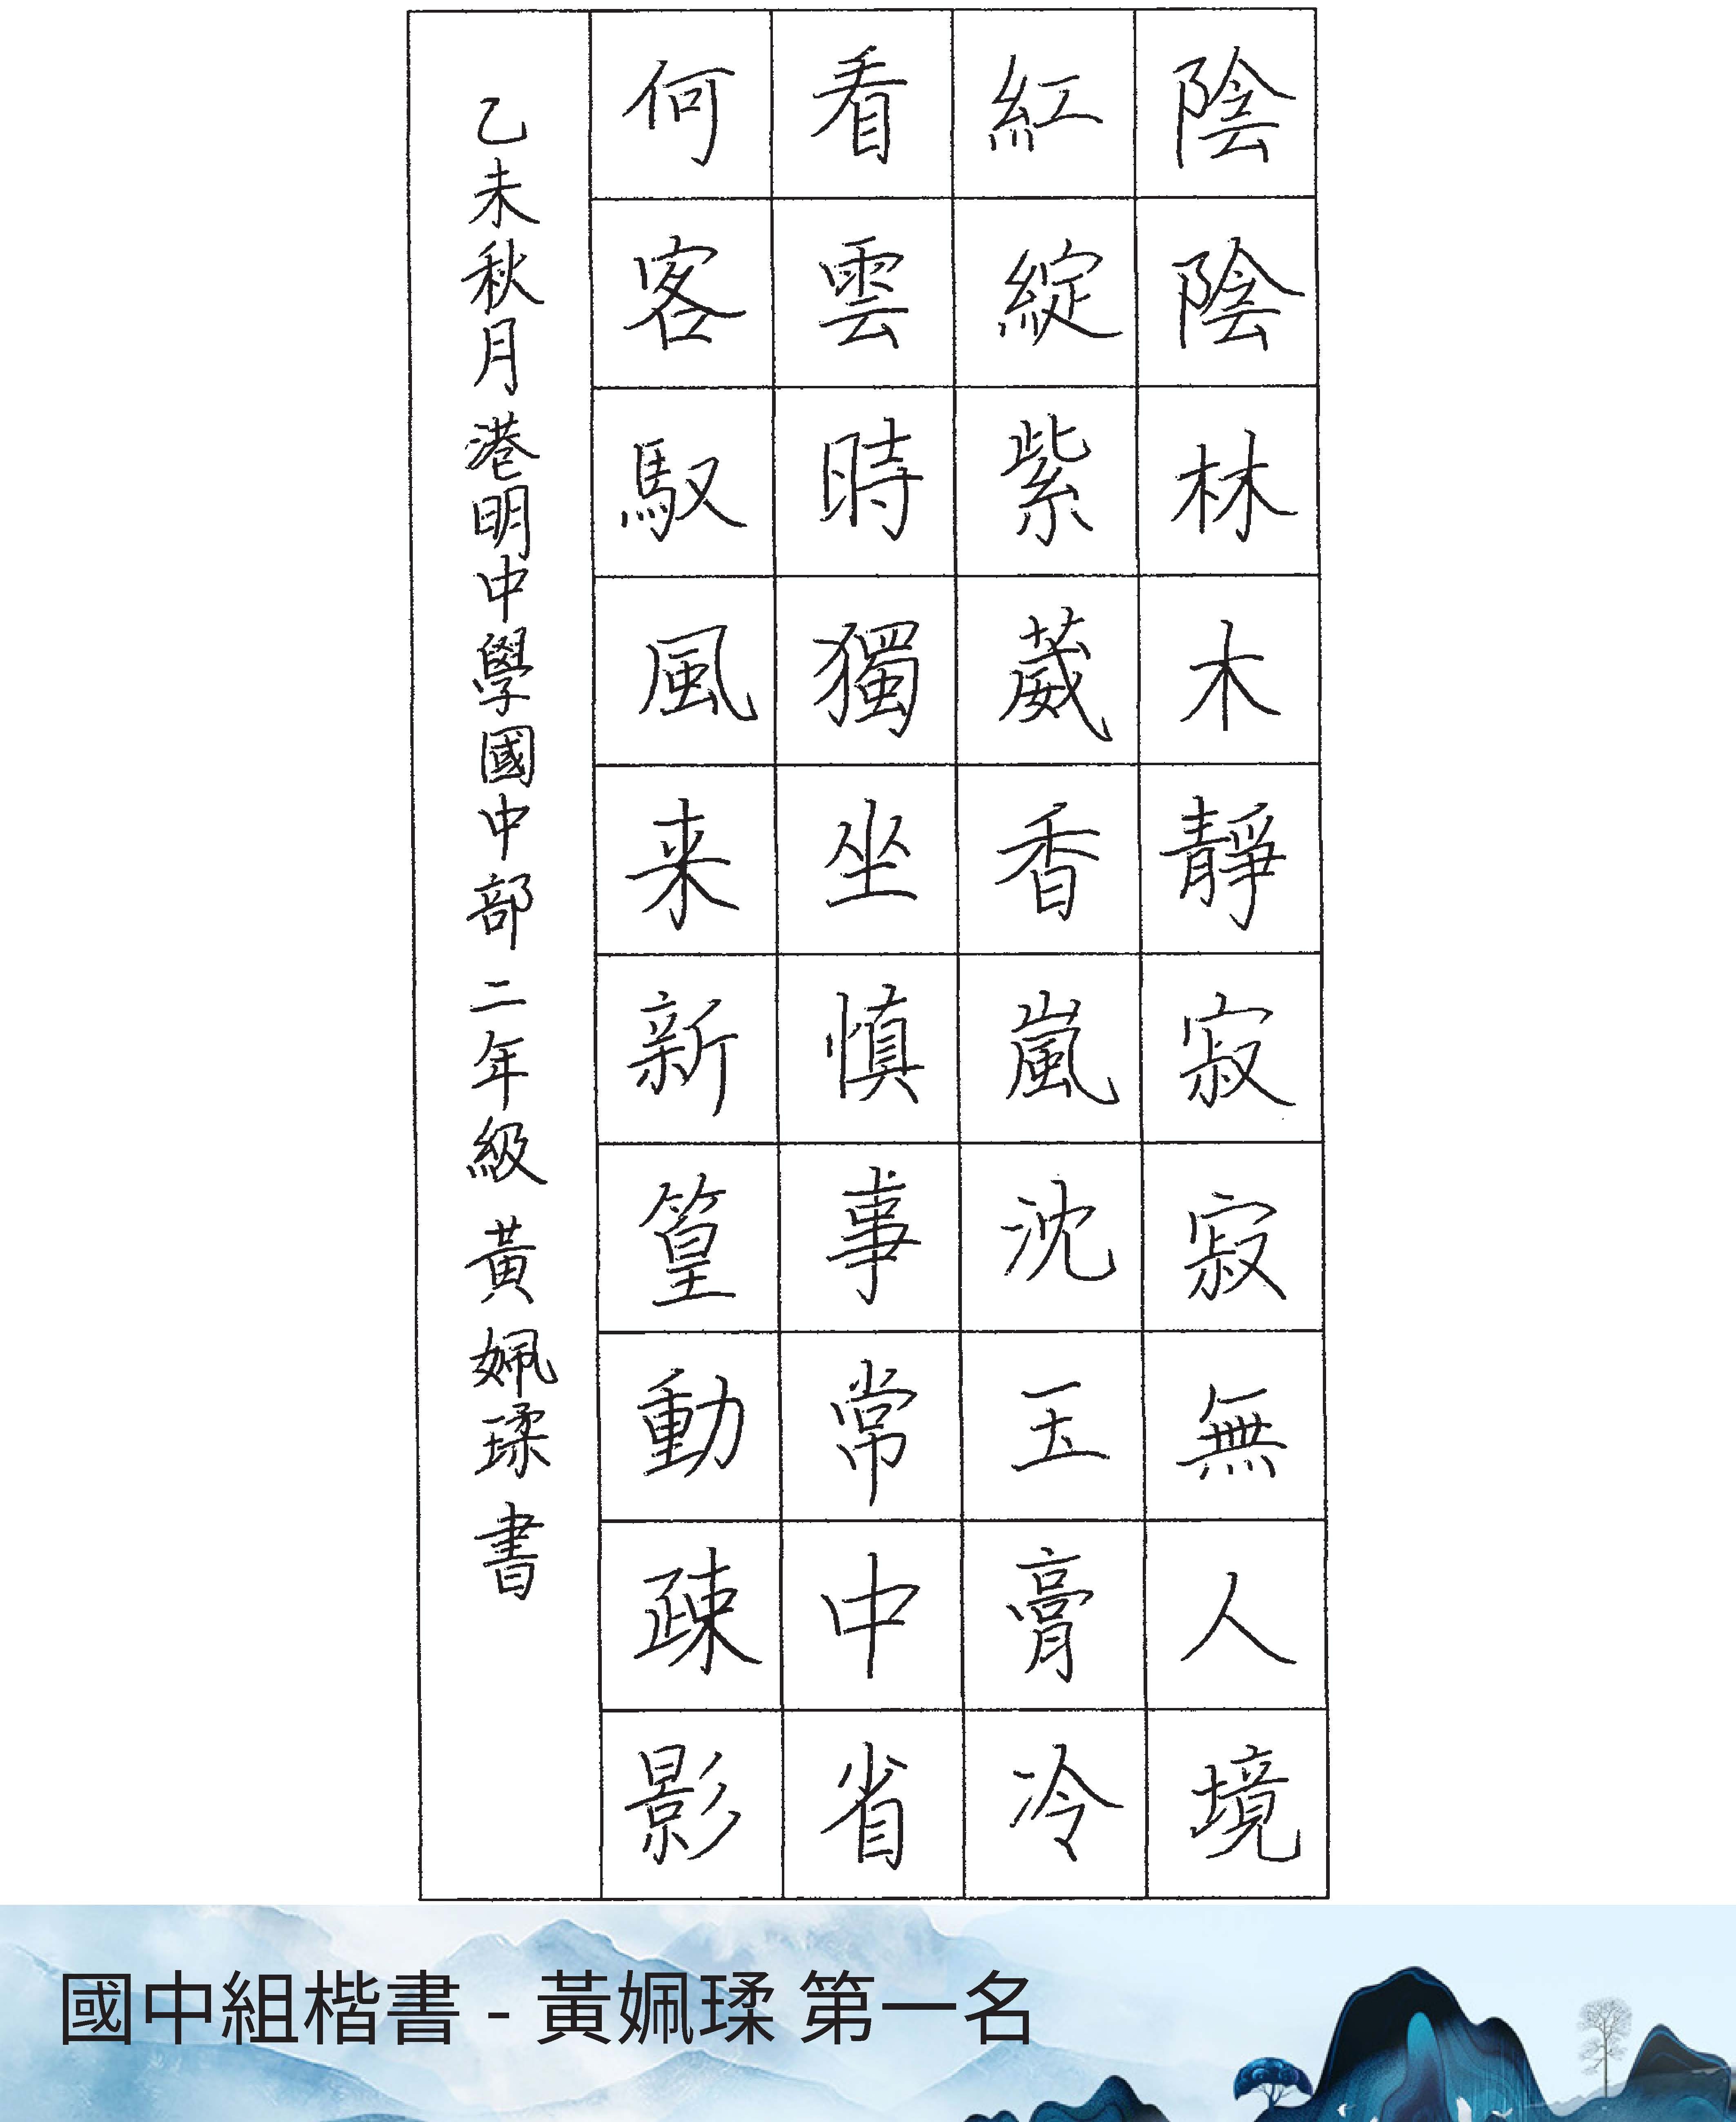 陰陰林木靜寂寂無人境
紅綻紫葳香嵐沈玉膏冷
看雲時獨坐慎事常中省
何客馭風来新篁動疎影
乙未秋月港明中學國中部二年級黃姵瑈書
國中組楷書 - 黃姵瑈 第一名